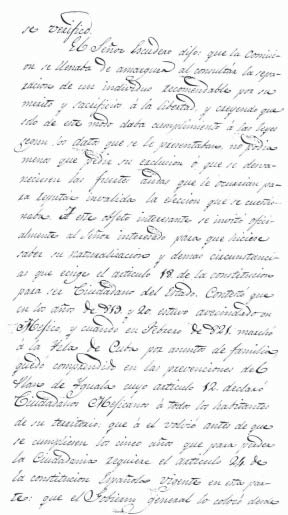 se verificó.
El Señor Escudero dijo: que la Comisi-
on se llenaba de amargura al consultár la sepa-
racion de un individuo recomendable por su
merito y sacrificios á la libertad, y creyendo que
solo de este modo daba cumplimiento á las leyes
segun los datos que se le presentaban, no podia
menos que pedir su exclusion ó que se desva-
neciesen las fuertes dudas que le ocurrian pa-
ra reputar invalida la eleccion que se cuestio-
naba. A este objeto interesante se invitó ofici-
almente al Señor interesado para que hiciese
saber su naturalizacion y demas circunstanci-
as que exige el articulo 18 de la constitucion
para ser Ciudadano del Estado. Contestó que
en los años de 819, y 20 estuvo avecindado en
Mégico, y cuando en Febrero de 821 marchó
á la Ysla de Cuba por asuntos de familia,
quedó comprendido en las prevenciones del
Plan de Yguala cuyo articulo 12 declaró
Ciudadanos Megicanos á todos los habitantes
de su territorio: que á el volvió antes de que
se cumpliesen los cinco años que para perder
la Ciudadania requiere el articulo 24 de
la constitucion Española vigente en esta par-
te: que el Gobierno General lo colocó desde